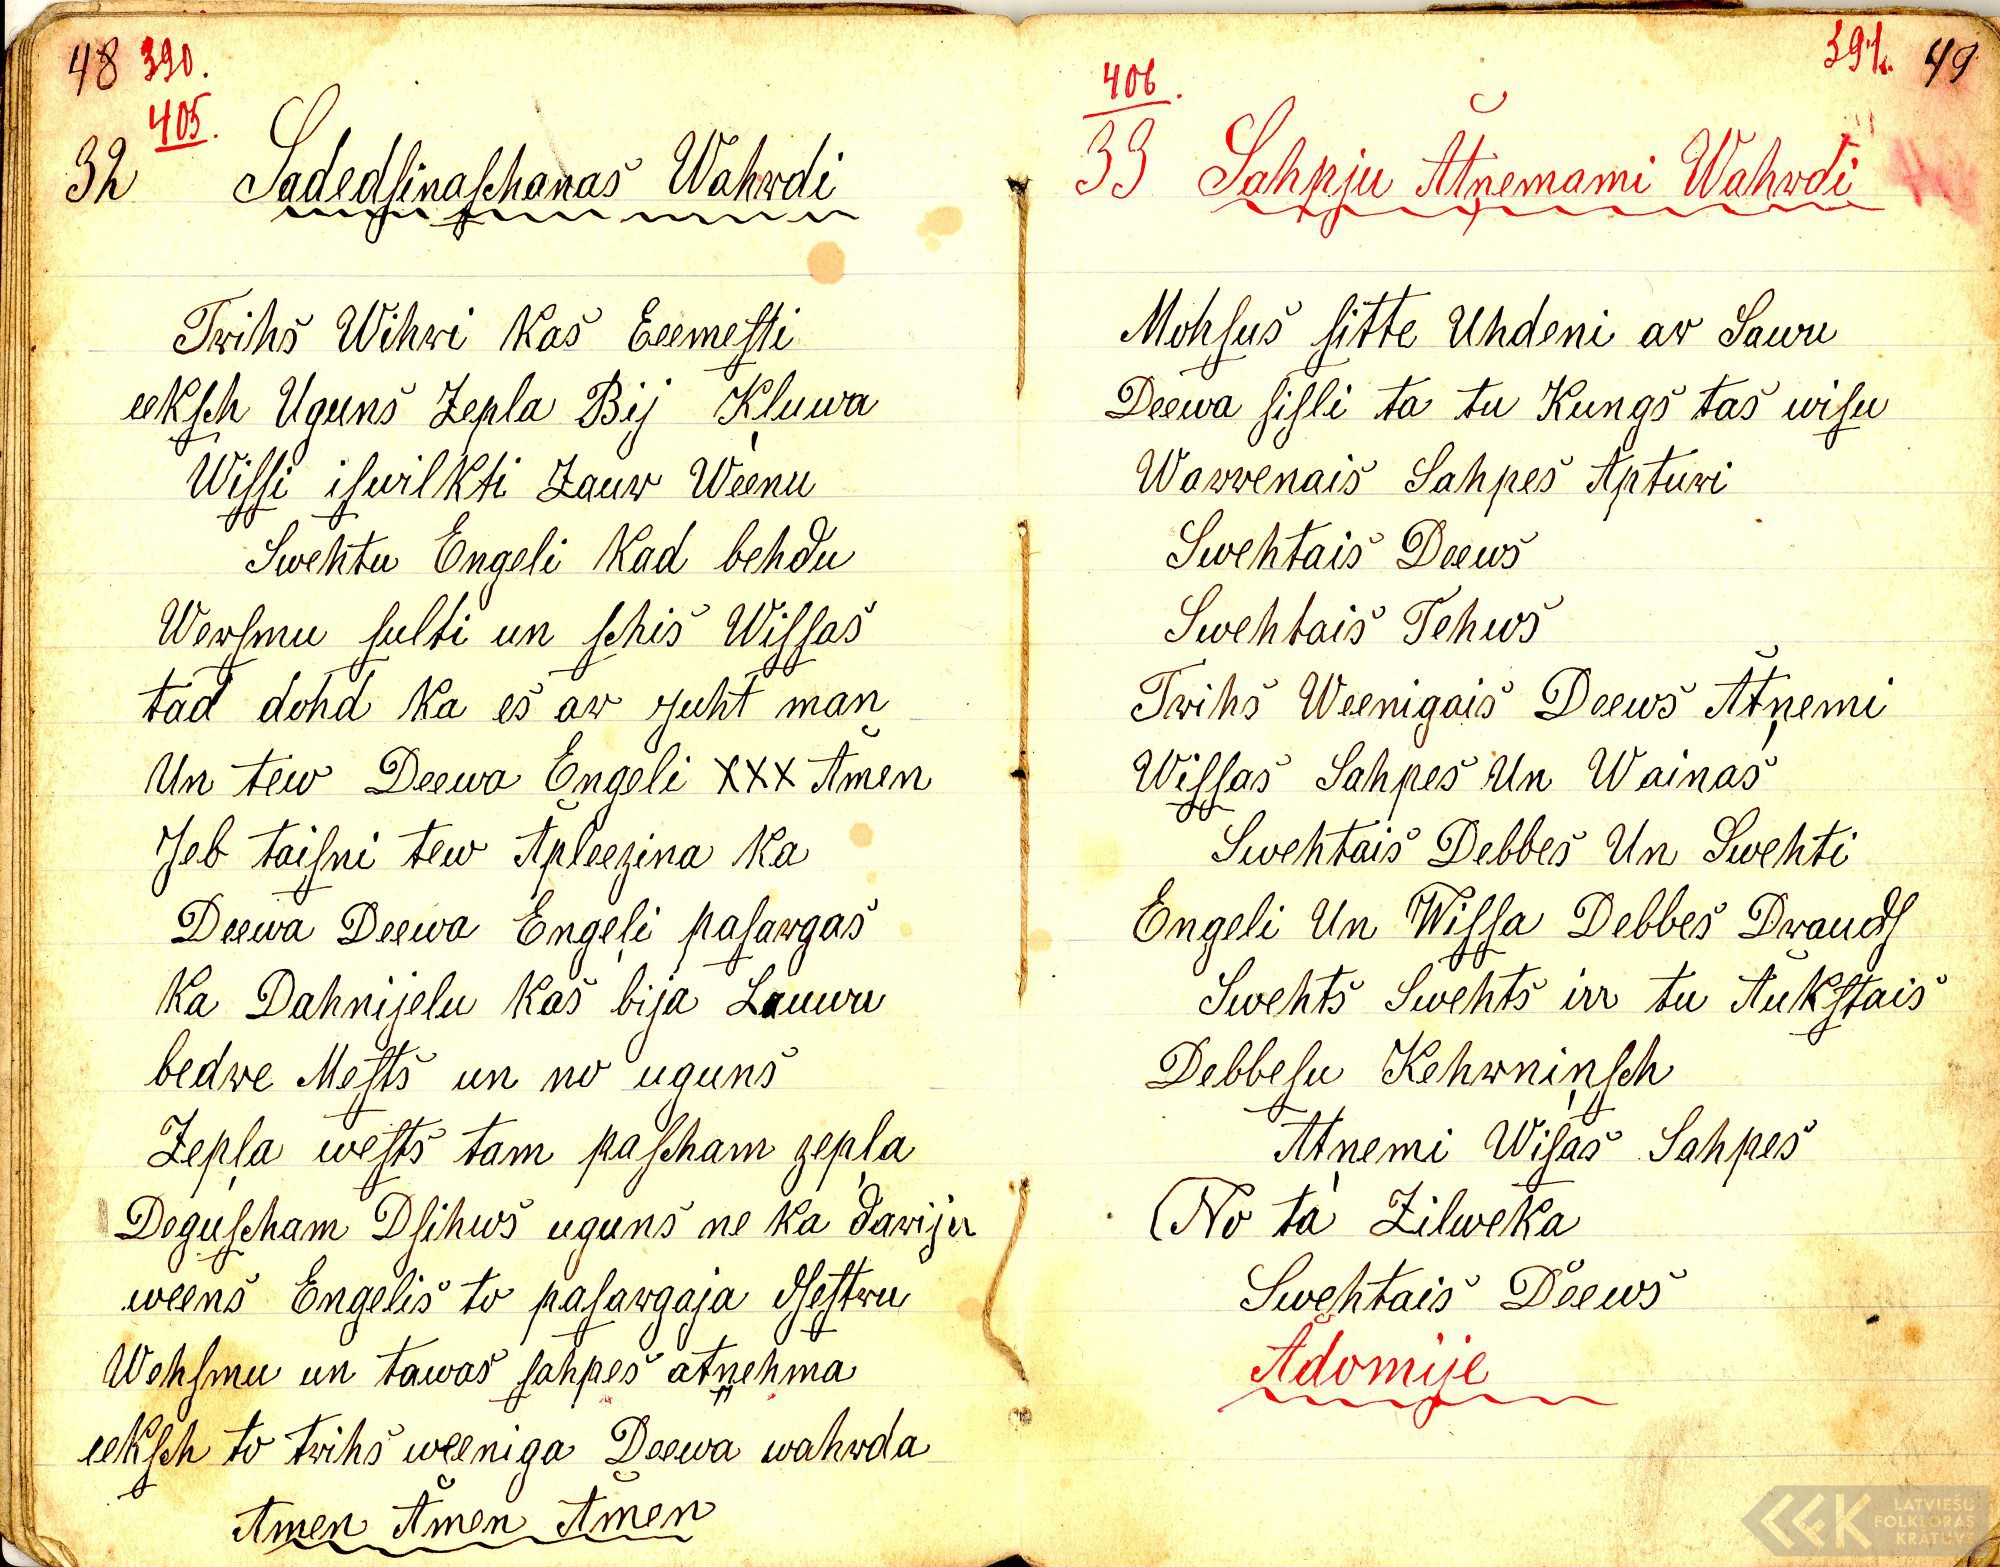 48 390.
405.
32 Sadedſinaſchanas Wahrdi
Trihs Wihri Kas Eeemeſti
eekſch Uguns Zepla Bij Kļuwa
Wiſſi iſwilkti Zaur Weenu
Swehtu Engeli Kad behdu
Werſmu ſulti un ſchis Wiſſas
tad dohd Ka es ar juht man
Un tew Deewa Engeli xxx Amen
Jeb taiſni tew Apleezina Ka
Deewa Deewa Engeļi paſargas
Ka Dahnijelu Kas bija Lauwu
bedre Meſts un no uguns
Zepļa weſts tam paſcham zepļa
Deguſcham Dſihws uguns ne ka dariju
weens Engelis to paſargaja dſeſtru
Wehſmu un tawas ſahpes atņehma
eekſch to trihs weeniga Deewa wahrda
Amen Amen Amen
391. 49
406.
33 Sahpju Atņemami Wahrdi
Mohſus ſitte Uhdeni ar Sawu
Deewa ſiſli ta tu Kungs tas wiſu
Warrenais Sahpes Apturi
Swehtais Deews
Swehtais Tehws
Trihs Weenigais Deews Atņemi
Wiſſas Sahpes Un Wainas
Swehtais Debbes Un Swehti
Engeli Un Wiſſa Debbes Draudſ
Swehts Swehts irr tu Aukſtais
Debbeſu Kehrniņſch
Atņemi Wiſas Sahpes
(No ta Zilweka
Swehtais Deews
Adomije
LATVIEŠU
FOLKLORAS
KRĀTUVE